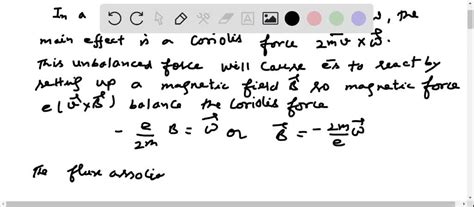 In a ω, the
main effect is a Coriolis force 2m v⃗ × ω⃗.
This unbalanced force will cause ēs to react by
setting up a magnetic field B⃗ so magnetic force
e(v⃗×B⃗) balance the Coriolis force
- e/2m B = ω⃗ or B⃗ = - 2m/e ω⃗
The flux associa